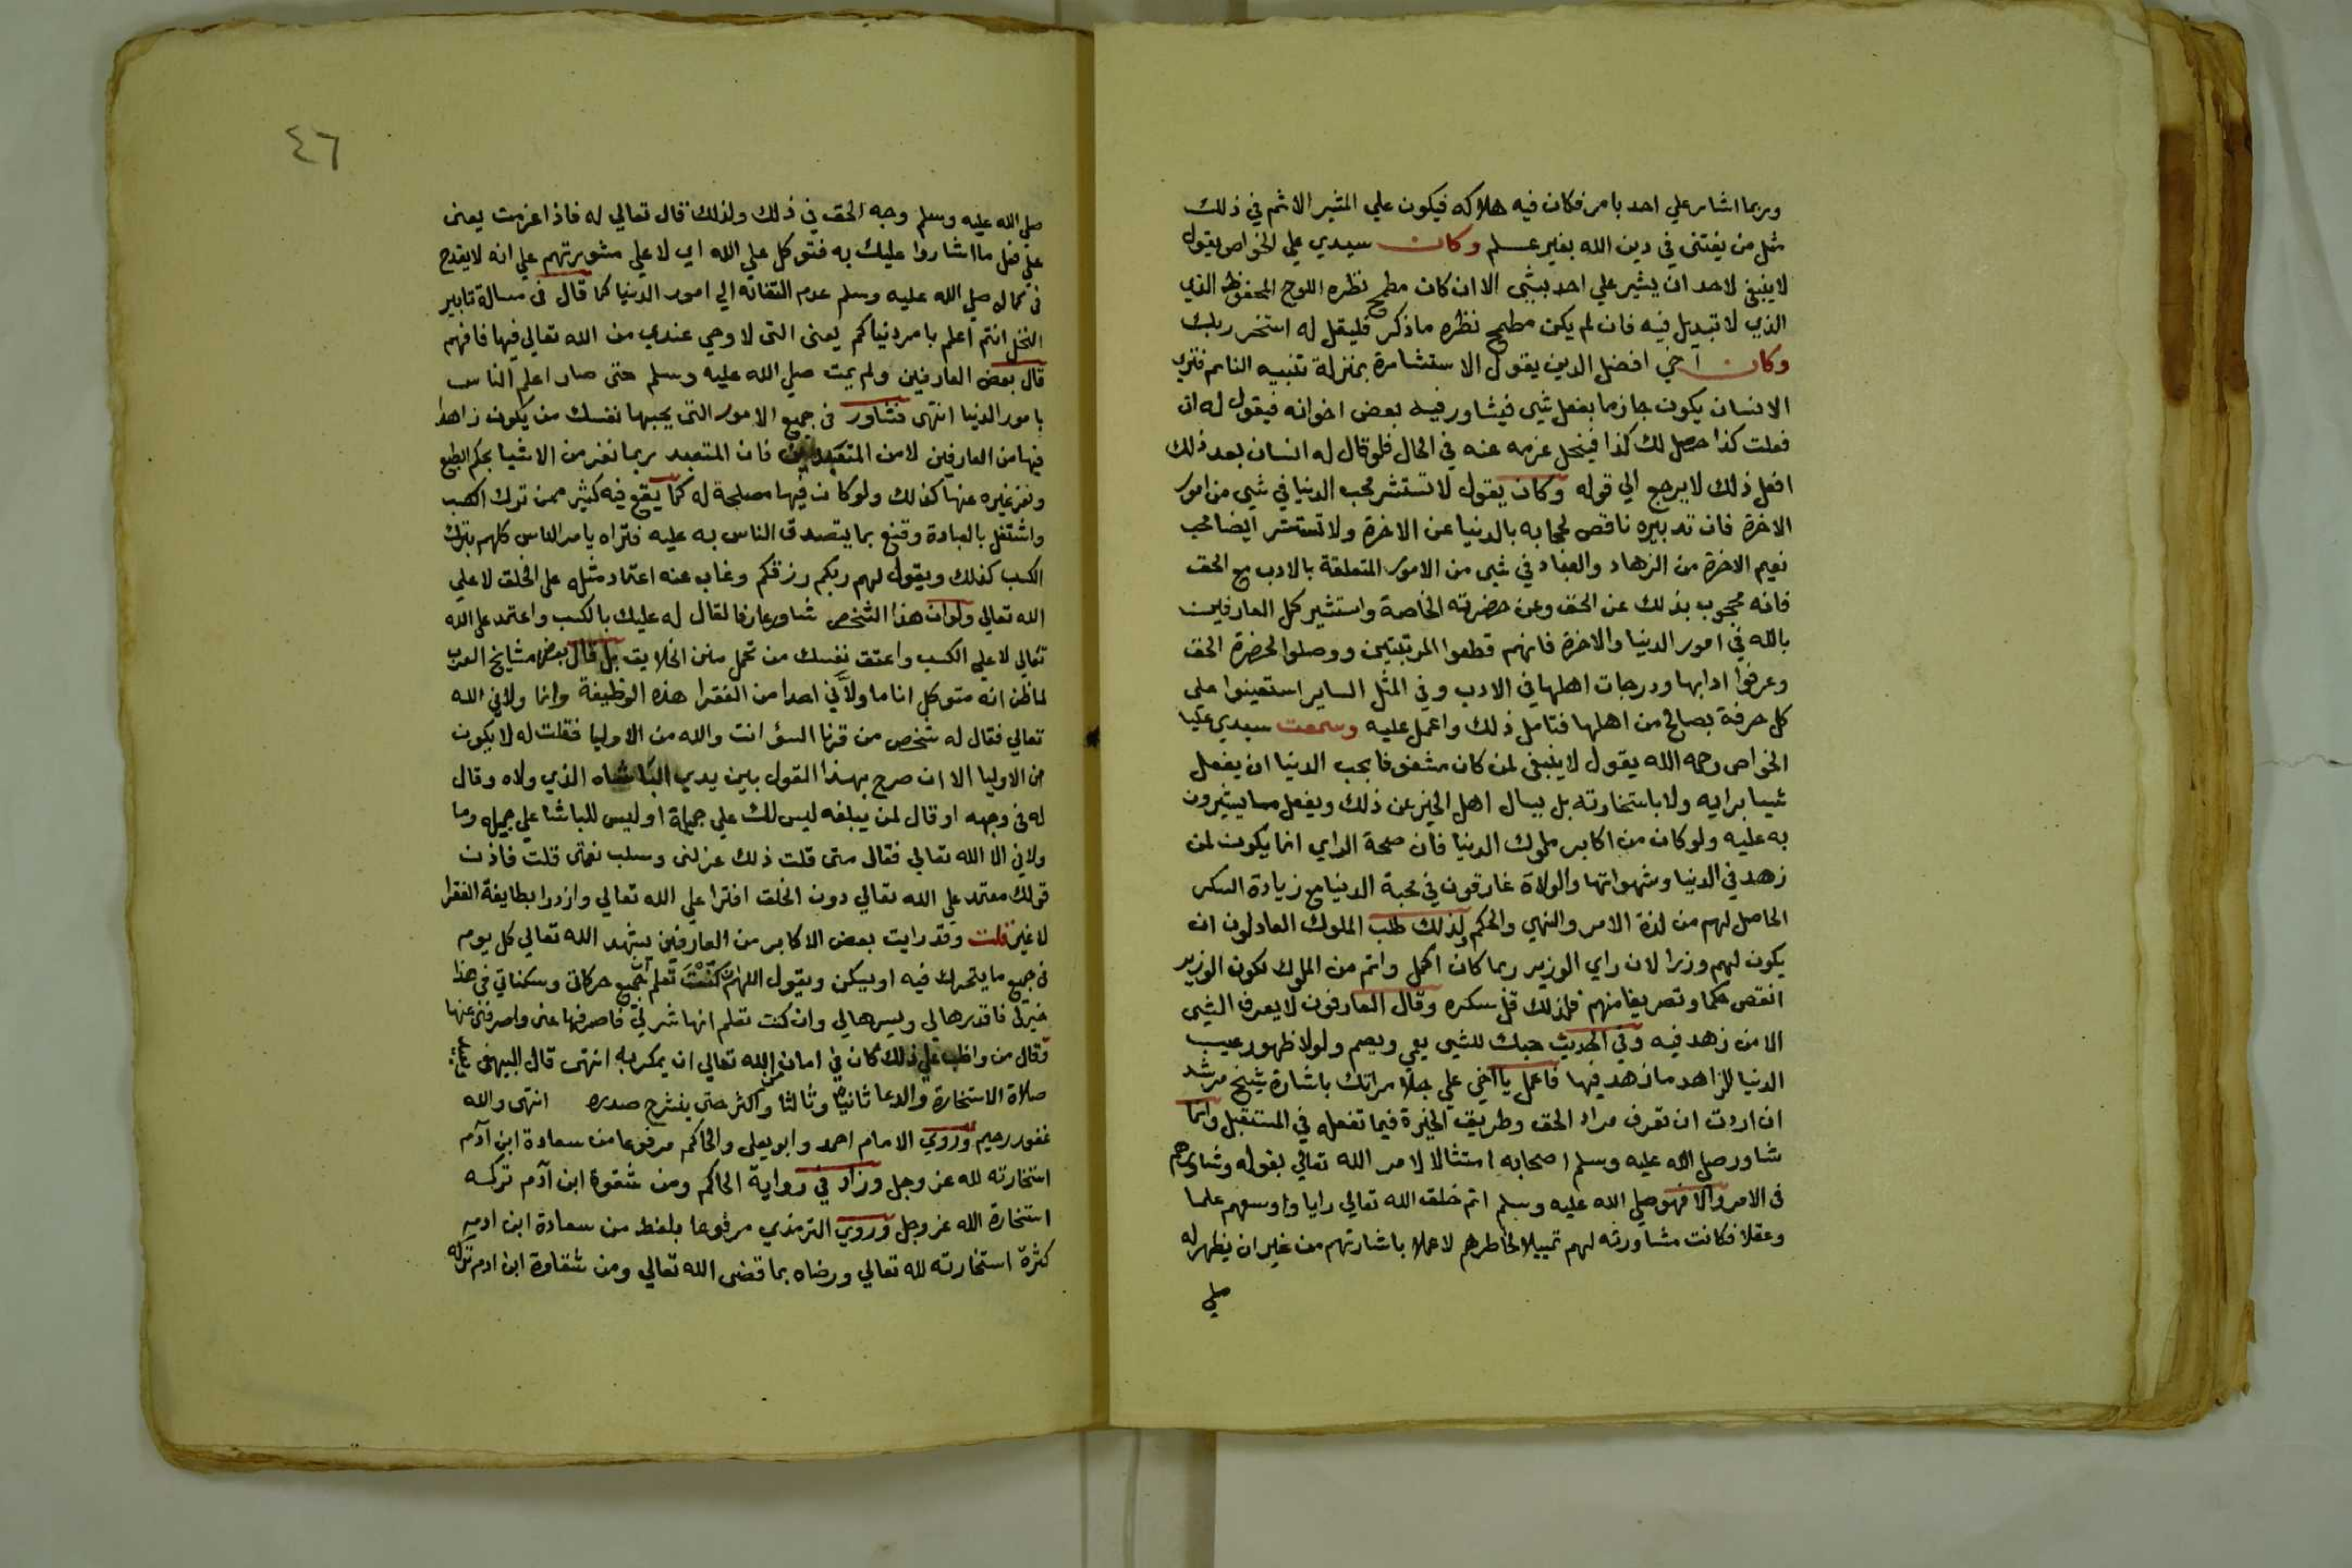 وربما اشار علي احد بامر فكان فيه هلاكه فيكون علي المشير الاثم في ذلك
مثل من يفتي في دين الله بغير علم وكان سيدي علي الخواص يقول
لا ينبغي لاحد ان يشير علي احد بشي الا ان كان مطمح نظره اللوح المحفوظ الذي
الذي لا تبديل فيه فان لم يكن مطمح نظره ما ذكر فليقل له استخر ربك
وكان اخي افضل الدين يقول الاستشارة بمنزلة تنبيه النايم فتري
الانسان يكون جازما بفعل شي فيشاور فيه بعض اخوانه فيقول له ان
فعلت كذا حصل لك كذا فينحل عزمه عنه في الحال فلو قال له انسان بعد ذلك
افعل ذلك لا يرجع الي قوله وكان يقول لا تستشر محب الدنيا في شي من امور
الاخرة فان تدبيره ناقص لحجابه بالدنيا عن الاخرة ولا تستشر ايضا محب
نعيم الاخرة من الزهاد والعباد في شي من الامور المتعلقة بالادب مع الحق
فانه محجوب بذلك عن الحق وعن حضرته الخاصة واستشير كل العارفين
بالله في امور الدنيا والاخرة فانهم قطعوا المرتبتين ووصلوا لحضرة الحق
وعرفوا ادابها ودرجات اهلها في الادب وفي المثل الساير استعينوا علي
كل حرفة بصالح من اهلها فتامل ذلك واعمل عليه وسمعت سيدي عليا
الخواص رحمه الله يقول لا ينبغي لمن كان مشغوفا بحب الدنيا ان يفعل
شيا برايه ولا باستخارته بل يسال اهل الخير عن ذلك ويفعل ما يشيرون
به عليه ولو كان من اكابر ملوك الدنيا فان صحة الراي انما يكون لمن
زهد في الدنيا وشهواتها والولاة غارقون في محبة الدنيا مع زيادة السكر
الحاصل لهم من لذة الامر والنهي والحكم ولذلك طلب الملوك العادلون ان
يكون لهم وزرا لان راي الوزير ربما كان اكمل واتم من الملوك لكون الوزير
انقص حكما وتصريفا منهم فلذلك قل سكره وقال العارفون لا يعرف الشي
الا من زهد فيه وفي الحديث حبك للشي يعمي ويصم ولولا ظهور عيب
الدنيا للزاهد ما زهد فيها فاعمل يا اخي علي جلا مراتك باشارة شيخ مرشد
ان اردت ان تعرف مراد الحق وطريق الخيرة فيما تفعله في المستقبل وانما
شاور صلي الله عليه وسلم اصحابه امتثالا لامر الله تعالي بقوله وشاورهم
في الامر والا فهو صلي الله عليه وسلم اتم خلق الله تعالي رايا واوسعهم علما
وعقلا فكانت مشاورته لهم تمييلا لخاطرهم لا عملا باشارتهم من غير ان يظهر له
صلي
٤٦
صلي الله عليه وسلم وجه الحق في ذلك ولذلك قال تعالي له فاذا عزمت يعني
علي فعل ما اشاروا عليك به فتوكل علي الله اي لا علي مشورتهم علي انه لا يقدح
في كماله صلي الله عليه وسلم عدم التفاته الي امور الدنيا كما قال في مسالة تابير
النخل انتم اعلم بامر دنياكم يعني التي لا وحي عندي من الله تعالي فيها فافهم
قال بعض العارفين ولم يمت صلي الله عليه وسلم حتي صار اعلم الناس
بامور الدنيا انتهي فشاور في جميع الامور التي يحبها نفسك من يكون زاهدا
فيها من العارفين لا من المتعبدين فان المتعبد ربما نفر من الاشيا بحكم الطبع
ونفر غيره عنها كذلك ولو كان فيها مصلحة له كما يقع فيه كثير ممن ترك الكسب
واشتغل بالعبادة وقنع بما يتصدق الناس به عليه فتراه يامر الناس كلهم بترك
الكسب كذلك ويقول لهم ربكم رزقكم وغاب عنه اعتماد مثله علي الخلق لا علي
الله تعالي ولو ان هذا الشخص شاور عارفا لقال له عليك بالكسب واعتمد علي الله
تعالي لا علي الكسب واعتق نفسك من تحمل منن الخلايق بل قال بعض مشايخ العرب
لما ظن انه متوكل انا ما ولاني احدا من الفقرا هذه الوظيفة وانما ولاني الله
تعالي فقال له شخص من قرنا السؤ انت والله من الاوليا فقلت له لا يكون
من الاوليا الا ان صرح بهذا القول بين يدي الباشاه الذي ولاه وقال
له في وجهه او قال لمن يبلغه ليس لك علي جميلة او ليس للباشا علي جميله وما
ولاني الا الله تعالي فقال متي قلت ذلك عزلني وسلب نعمتي قلت فاذن
قولك معتمد علي الله تعالي دون الخلق افترا علي الله تعالي وازدرا بطايفة الفقرا
لا غير قلت وقد رايت بعض الاكابر من العارفين يشهد الله تعالي كل يوم
في جميع ما يتحرك فيه او يسكن ويقول اللهم ان كنت تعلم ان جميع حركاتي وسكناتي في هذا
خير لي فاقدرها لي ويسرها لي وان كنت تعلم انها شر لي فاصرفها عني واصرفني عنها
وقال من واظب علي ذلك كان في امان من الله تعالي ان يمكر به انتهي قال البيهقي
صلاة الاستخارة والدعا ثانيا وثالثا واكثر حتي ينشرح صدره انتهي والله
غفور رحيم وروي الامام احمد وابو يعلي والحاكم مرفوعا من سعادة ابن آدم
استخارته لله عز وجل وزاد في رواية الحاكم ومن شقوة ابن آدم تركه
استخارة الله عز وجل وروي الترمذي مرفوعا بلفظ من سعادة ابن ادم
كثرة استخارته لله تعالي ورضاه بما قضي الله تعالي ومن شقاوة ابن ادم تركه